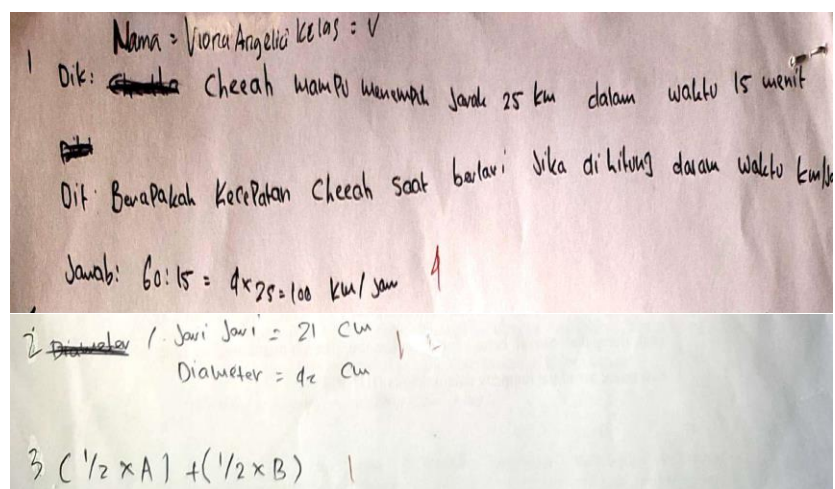 Nama = Viona Angelici Kelas = V
1 Dik: Cheeah mampu menempuh Jarak 25 km dalam waktu 15 menit
Dit: Berapakah Kecepatan Cheeah Saat berlari Jika di hitung dalam waktu km/Ja
Jawab: 60:15 = 4x25=100 km/jam 4
2 1. Jari Jari = 21 cm 1
Diameter = 42 cm
3 (1/2 x A) + (1/2 x B) 1